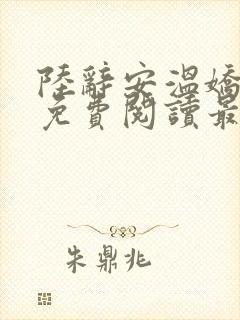 陸辭安溫嬌
免費閱讀最
朱鼎兆